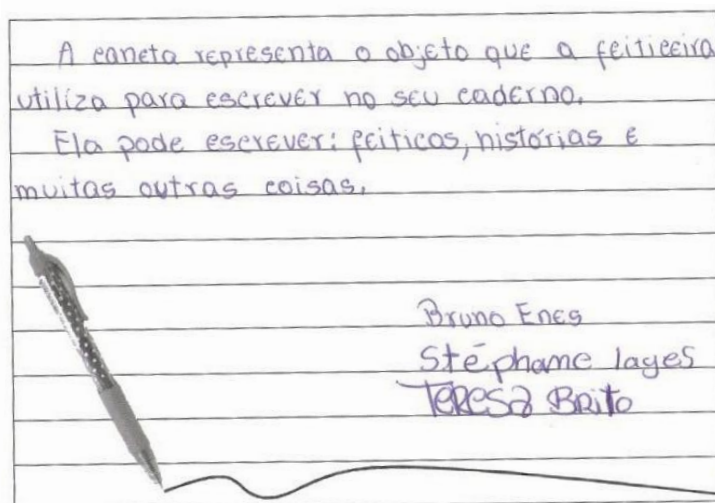 A caneta representa o objeto que a feiticeira
utiliza para escrever no seu caderno.
Ela pode escrever: feiticos, histórias e
muitas outras coisas.
Bruno Enes
Stéphame lages
Teresa Brito